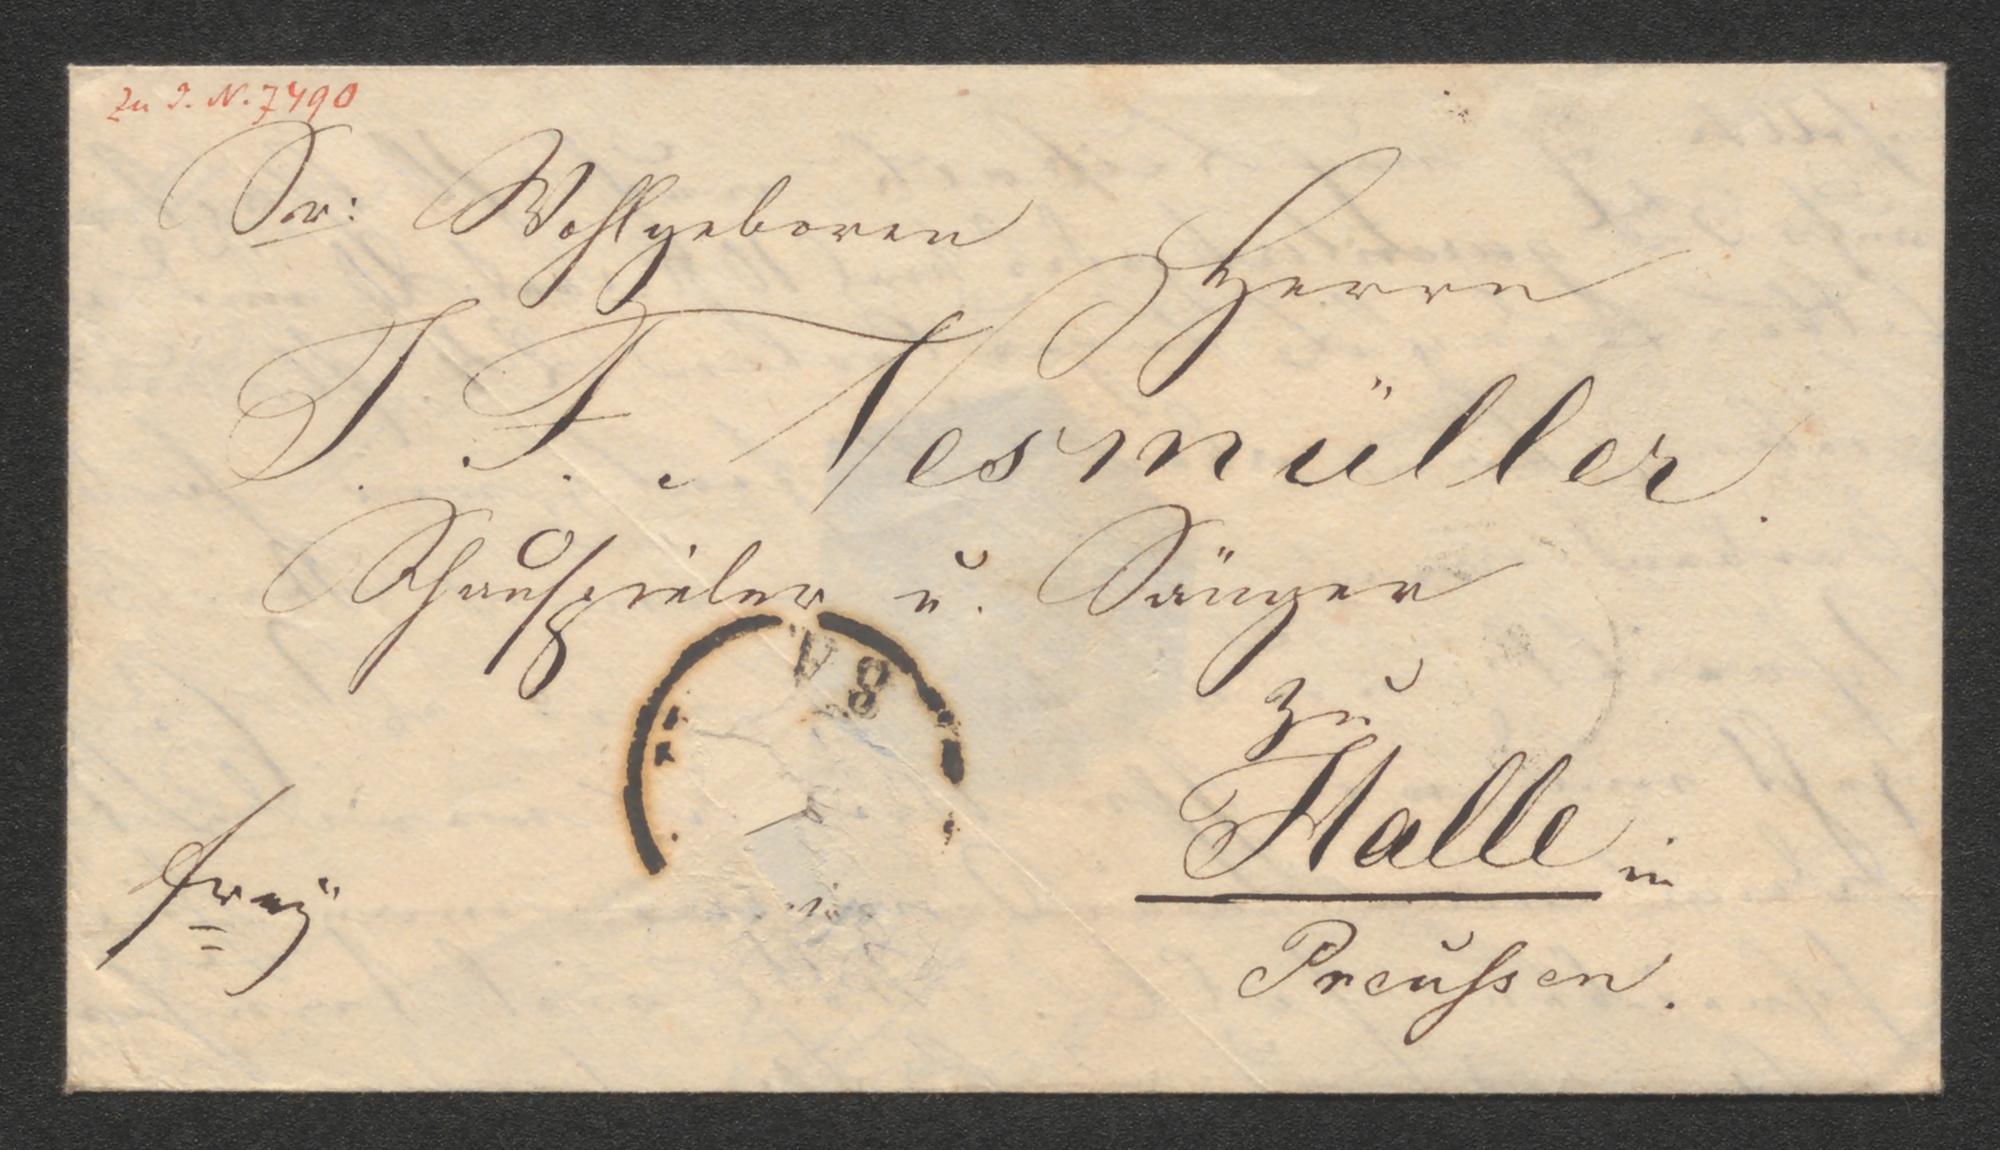 Zu I. N. 7490
Sr: Wohlgeboren
Herrn
J. F. Nesmüller.
Schauspieler u. Sänger
zu
Halle in
Preussen.
frey